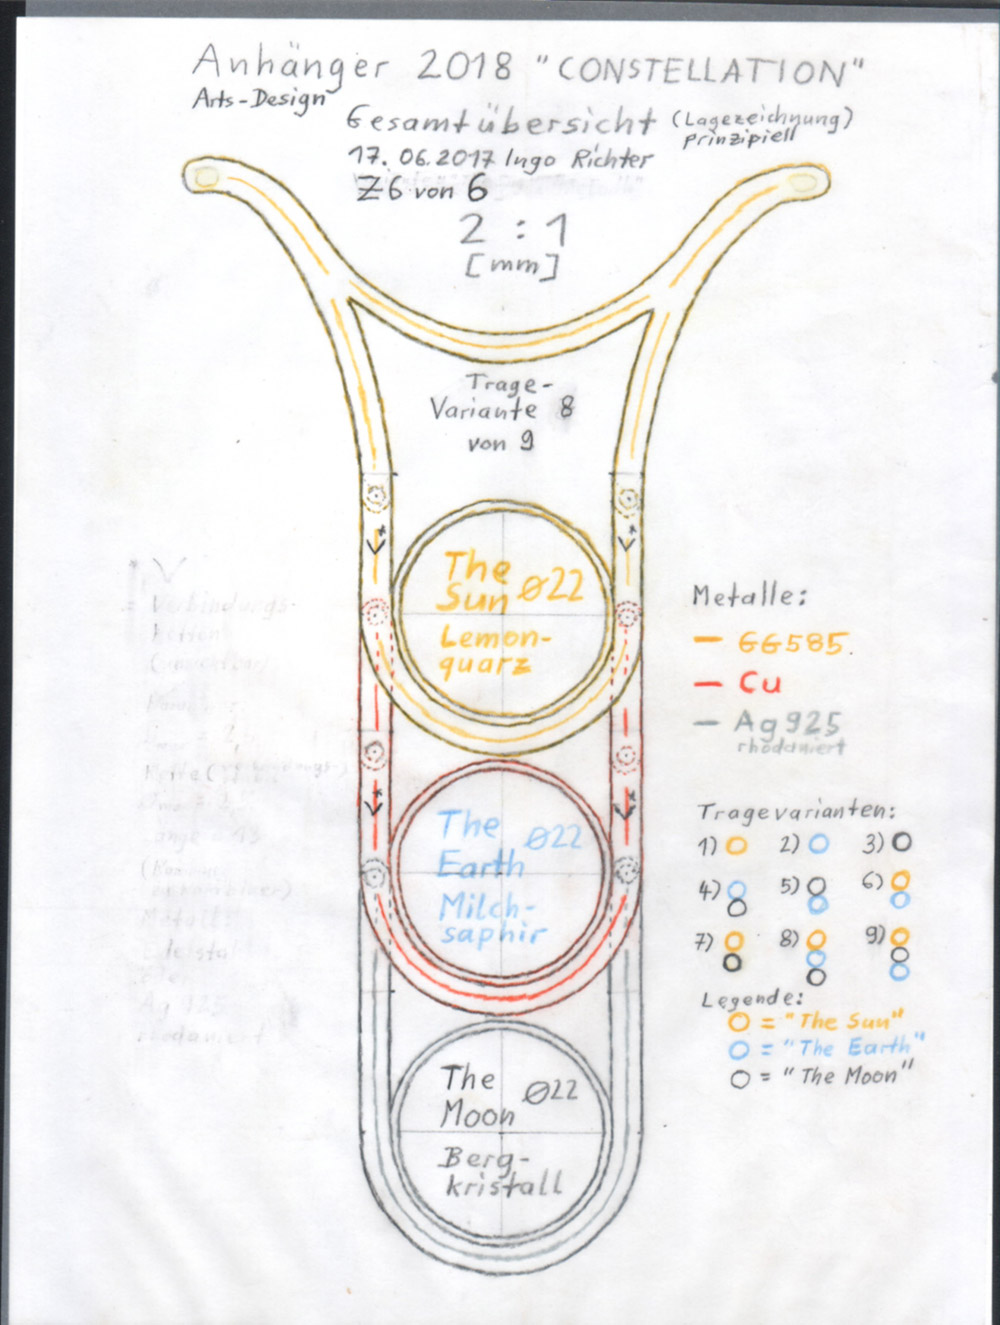 Anhänger 2018 "CONSTELLATION"
Arts-Design
Gesamtübersicht (Lagezeichnung)
prinzipiell
17.06.2017 Ingo Richter
Z6 von 6
2 : 1
[mm]
Trage-
Variante 8
von 9
The
Sun ø22
Lemon-
quarz
The ø22
Earth
Milch-
saphir
The
Moon ø22
Berg-
kristall
Metalle:
GG585.
Cu
Ag925
rhodaniert
Tragevarianten:
1) 2) 3)
4) 5) 6)
7) 8) 9)
Legende:
= "The Sun"
= "The Earth"
= "The Moon"
Verbindungs-
Metall:
Ag 925
rhodaniert